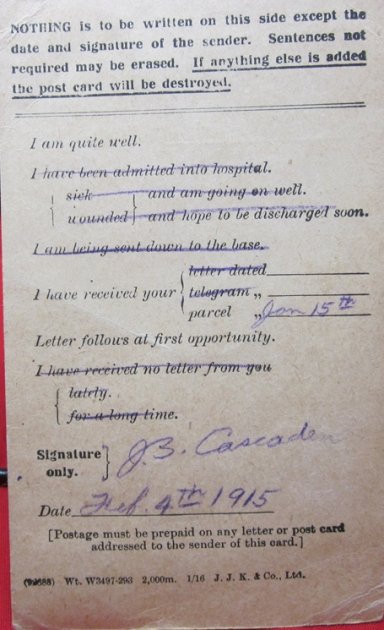 NOTHING is to be written on this side except the
date and signature of the sender. Sentences not
required may be erased. If anything else is added
the post card will be destroyed.
I am quite well.
I have been admitted into hospital.
sick and am going on well.
wounded and hope to be discharged soon.
I am being sent down to the base.
letter dated
I have received your telegram „
parcel „ Jan 15th
Letter follows at first opportunity.
I have received no letter from you
lately.
for a long time.
Signature
only. J.B. Cascaden
Date Feb. 4th 1915
[Postage must be prepaid on any letter or post card
addressed to the sender of this card.]
Wt. W3497-293 2,000m. 1/16 J. J. K. & Co., Ltd.